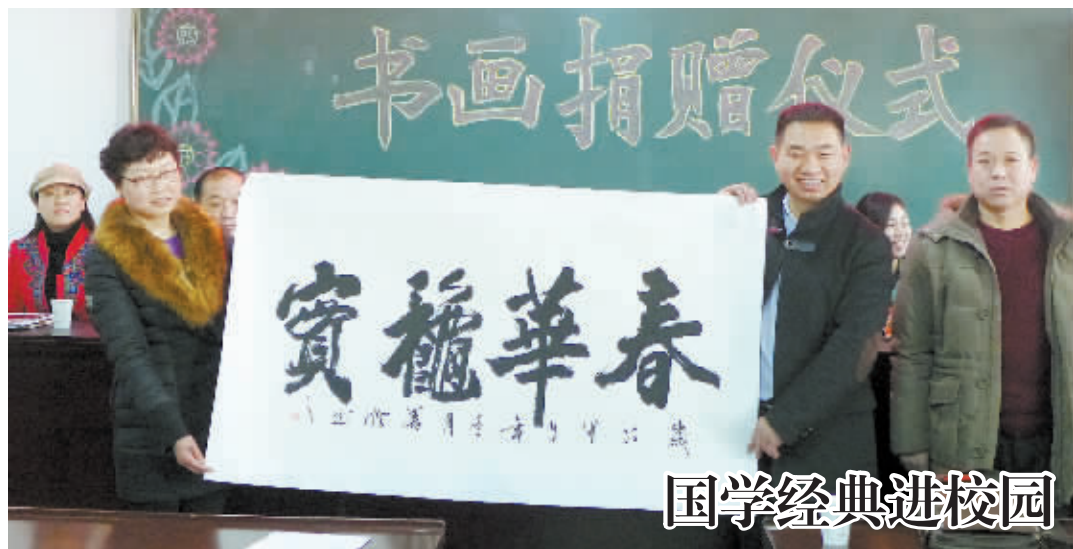 书画捐赠仪式
春華龝實
国学经典进校园